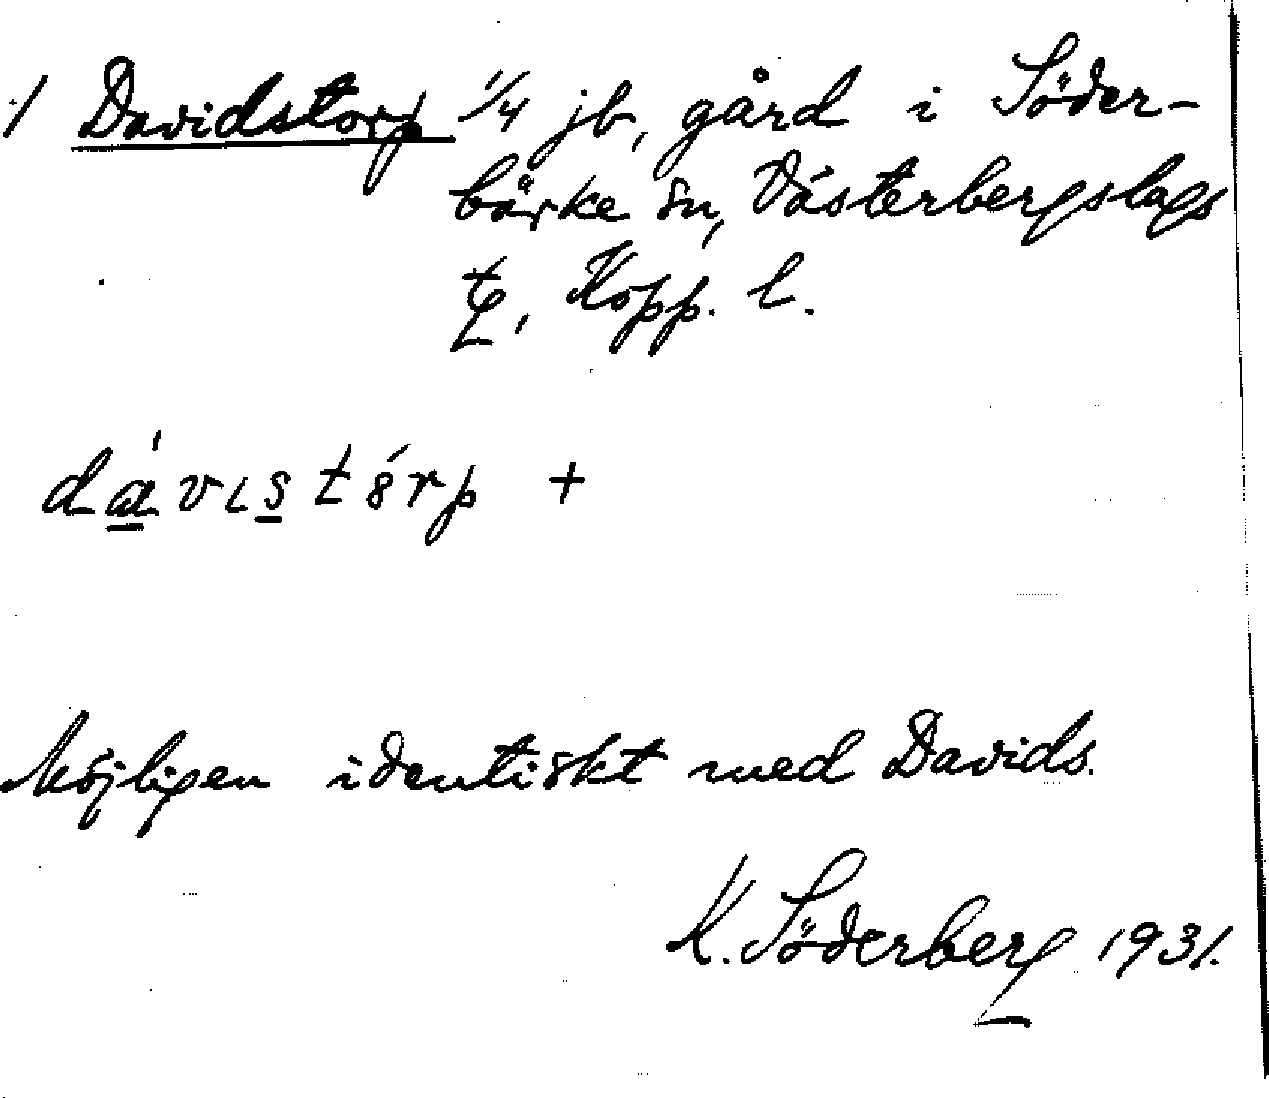 1/ Davidstorp 1/4 jb, gård i Söder-
bärke sn, Västerbergslags
tg, Kopp. l.
dávıstórp +
Möjligen identiskt med Davids.
K. Söderberg 1931.